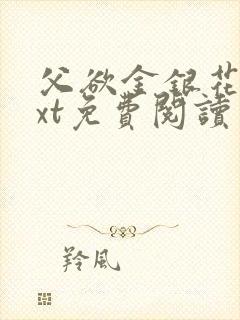 父欲金銀花
xt免費閱讀
羚風